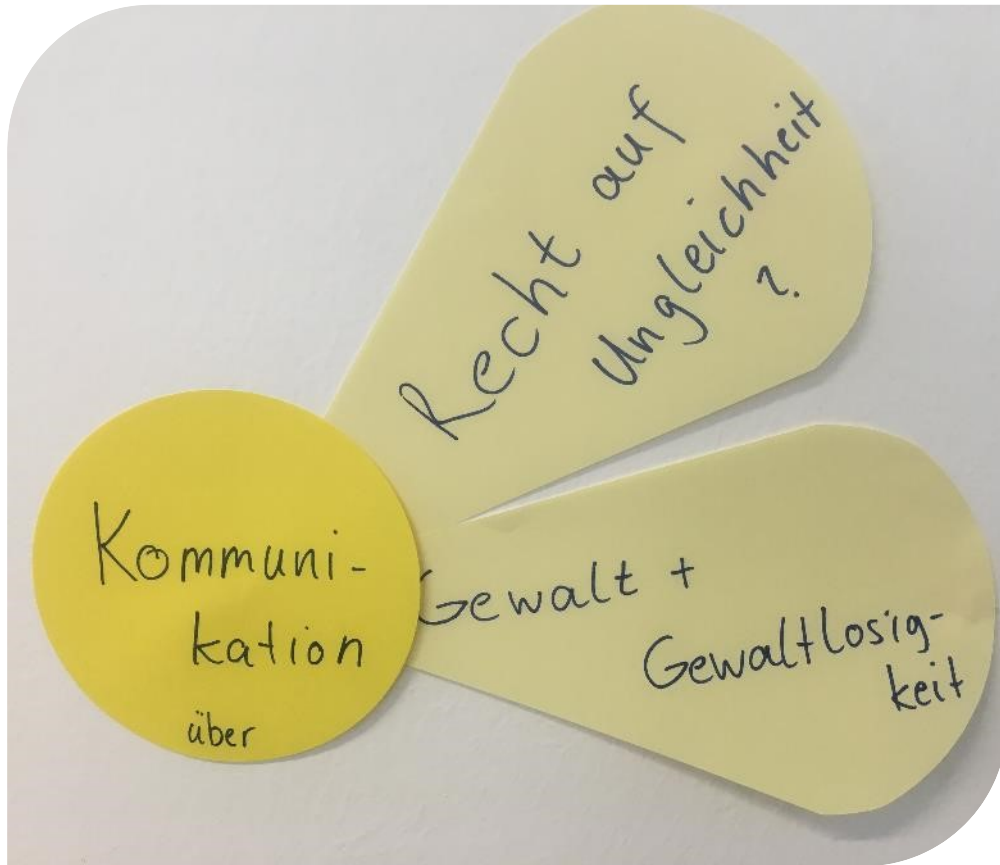 Kommuni-
kation
über
Recht auf
Ungleichheit
?
Gewalt +
Gewaltlosig-
keit